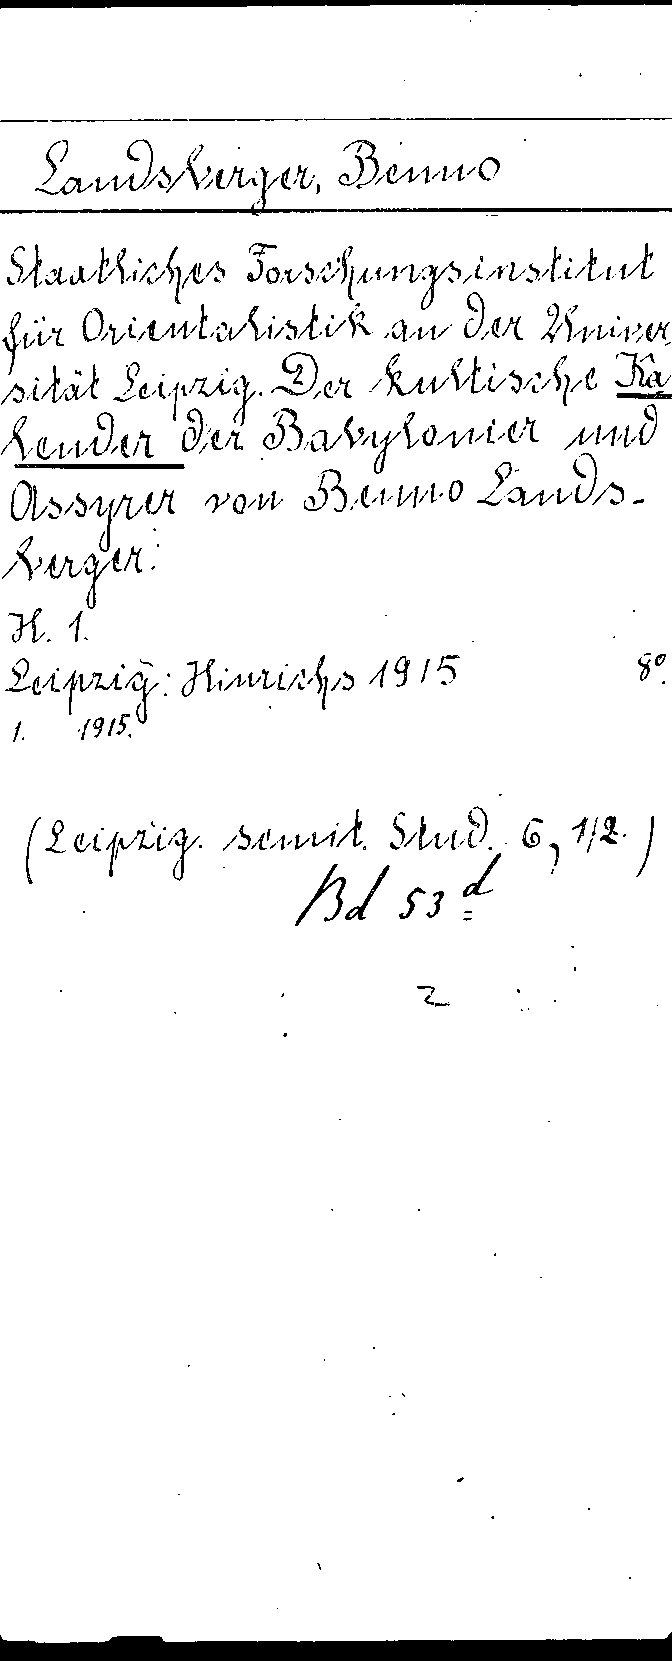 Landsberger, Benno
Staatliches Forschungsinstitut
für Orientalistik an der Univer,
sität Leipzig. Der kultische Ka
lender der Babylonier und
Assyrer von Benno Lands-
berger.
H. 1.
Leipzig: Hinrichs 1915 8°.
1. 1915.
(Leipzig. semit. Stud. 6, 1/2.)
Bd 53 d
2